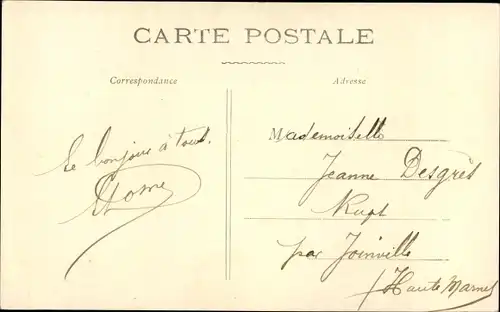 CARTE POSTALE
Correspondance
Adresse
Le bonjour à tous.
Mademoiselle
Jeanne Desgrès
Rupt
par Joinville
(Haute Marne)